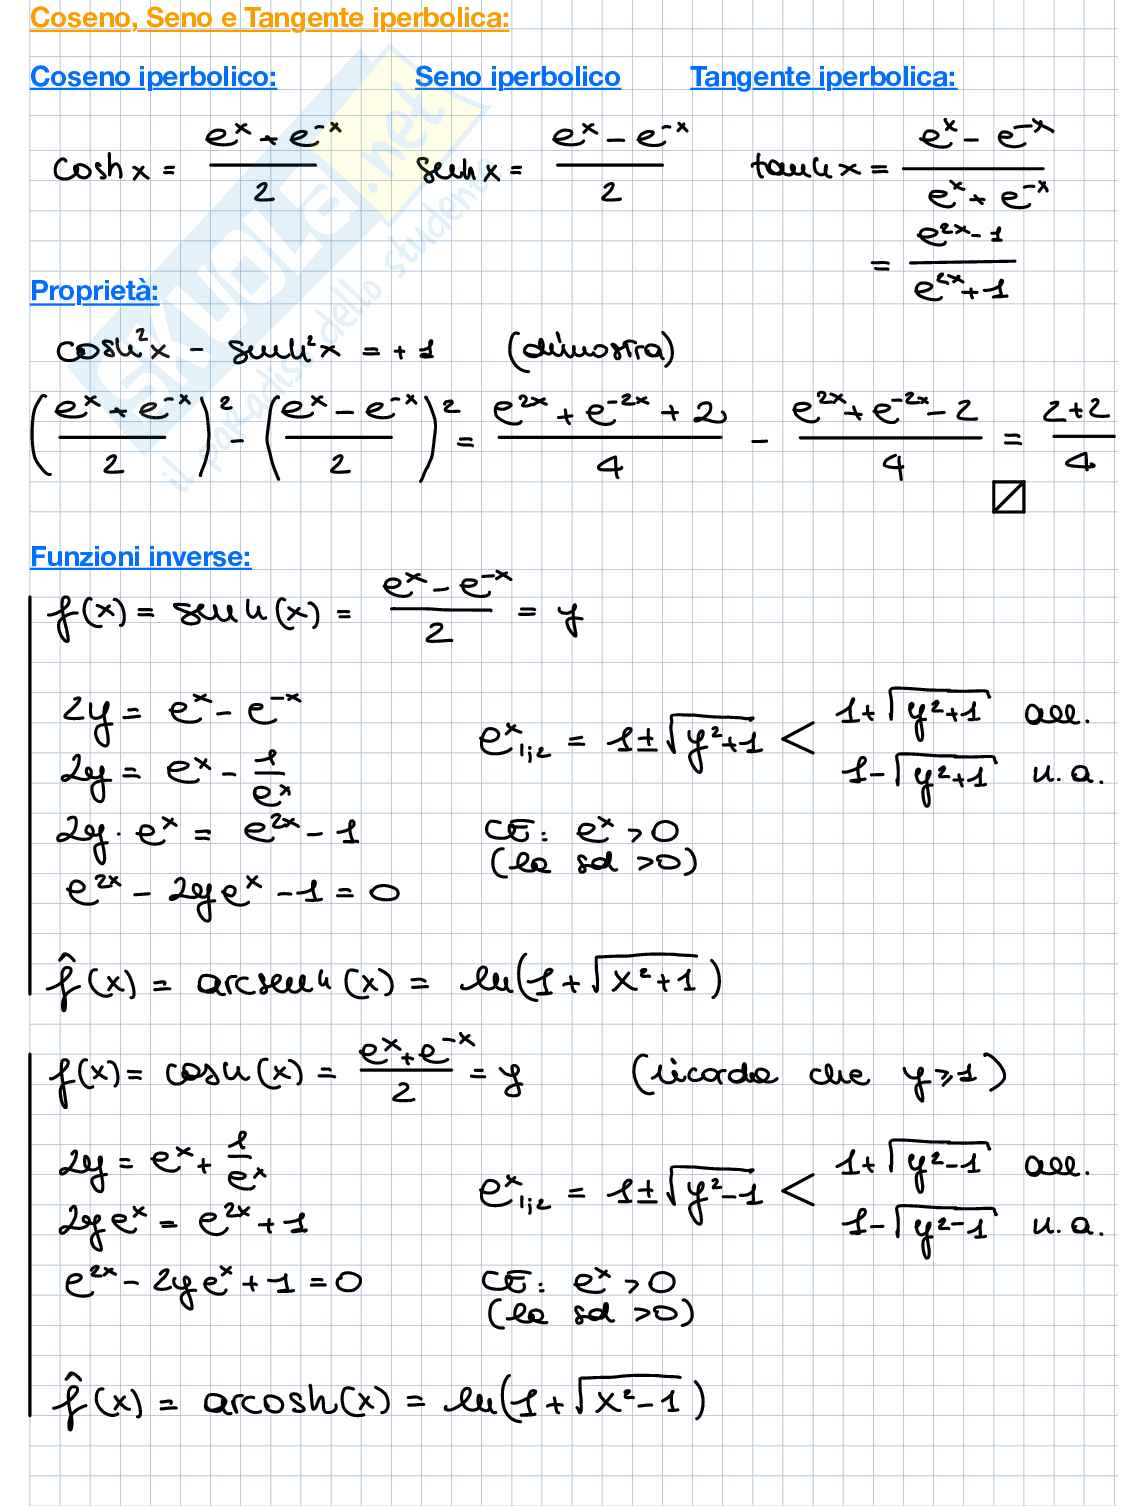 Coseno, Seno e Tangente iperbolica:
Coseno iperbolico: Seno iperbolico Tangente iperbolica:
cosh x = (e^x + e^-x)/2 senh x = (e^x - e^-x)/2 tanh x = (e^x - e^-x)/(e^x + e^-x)
= (e^2x - 1)/(e^2x + 1)
Proprietà:
cosh²x - senh²x = +1 (dimostra)
((e^x + e^-x)/2)² - ((e^x - e^-x)/2)² = (e^2x + e^-2x + 2)/4 - (e^2x + e^-2x - 2)/4 = (2+2)/4
Funzioni inverse:
f(x) = senh(x) = (e^x - e^-x)/2 = y
2y = e^x - e^-x
2y = e^x - 1/e^x
2y · e^x = e^2x - 1
e^2x - 2y e^x - 1 = 0
e^x 1,2 = 1 ± √(y²+1) <
1 + √(y²+1) acc.
1 - √(y²+1) n.a.
CE: e^x > 0
(la sol > 0)
f̂(x) = arcsenh(x) = ln(1 + √(x²+1))
f(x) = cosh(x) = (e^x + e^-x)/2 = y (ricorda che y ≥ 1)
2y = e^x + 1/e^x
2y e^x = e^2x + 1
e^2x - 2y e^x + 1 = 0
e^x 1,2 = 1 ± √(y²-1) <
1 + √(y²-1) acc.
1 - √(y²-1) n.a.
CE: e^x > 0
(la sol > 0)
f̂(x) = arcosh(x) = ln(1 + √(x²-1))
SKUOLA.net
il paradiso dello studente